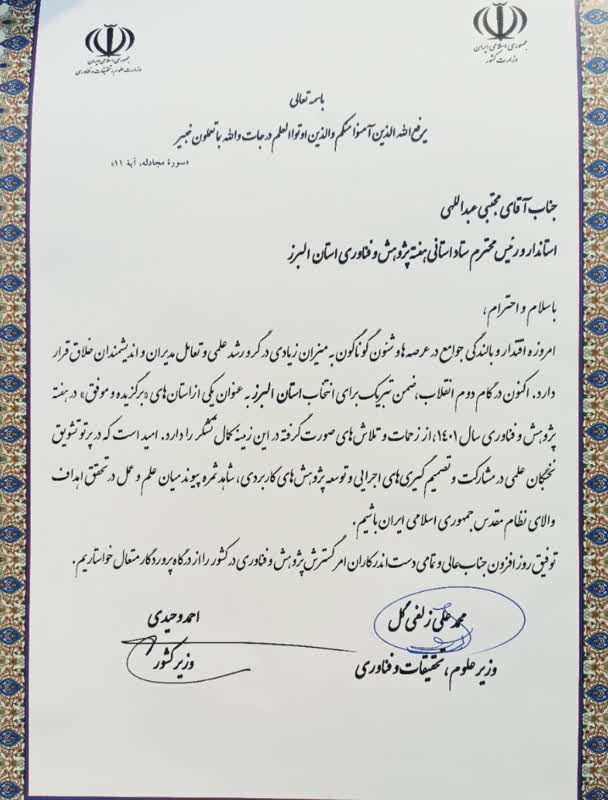 جمهوری اسلامی ایران
وزارت کشور
جمهوری اسلامی ایران
وزارت علوم، تحقیقات و فناوری
باسمه تعالی
یرفع الله الذین آمنوا منکم والذین اوتوا العلم درجات والله بما تعملون خبیر
«سورهٔ مجادله، آیهٔ ۱۱»
جناب آقای مجتبی عبداللهی
استاندار و رئیس محترم ستاد استانی هفته پژوهش و فناوری استان البرز
باسلام و احترام،
امروزه اقتدار و بالندگی جوامع در عرصه ها و شئون گوناگون به میزان زیادی در گرو رشد علمی و تعامل مدیران و اندیشمندان خلاق قرار
دارد. اکنون در گام دوم انقلاب، ضمن تبریک برای انتخاب استان البرز به عنوان یکی از استان های «برگزیده و موفق» در هفته
پژوهش و فناوری سال ۱۴۰۱، از زحمات و تلاش های صورت گرفته در این زمینه کمال تشکر را دارد. امید است که در پرتو تشویق
نخبگان علمی در مشارکت و تصمیم گیری های اجرایی و توسعه پژوهش های کاربردی، شاهد ثمره پیوند میان علم و عمل در تحقق اهداف
والای نظام مقدس جمهوری اسلامی ایران باشیم.
توفیق روز افزون جناب عالی و تمامی دست اندرکاران امر گسترش پژوهش و فناوری در کشور را از درگاه پروردگار متعال خواستاریم.
محمدعلی زلفی گل
وزیر علوم، تحقیقات و فناوری
احمد وحیدی
وزیر کشور